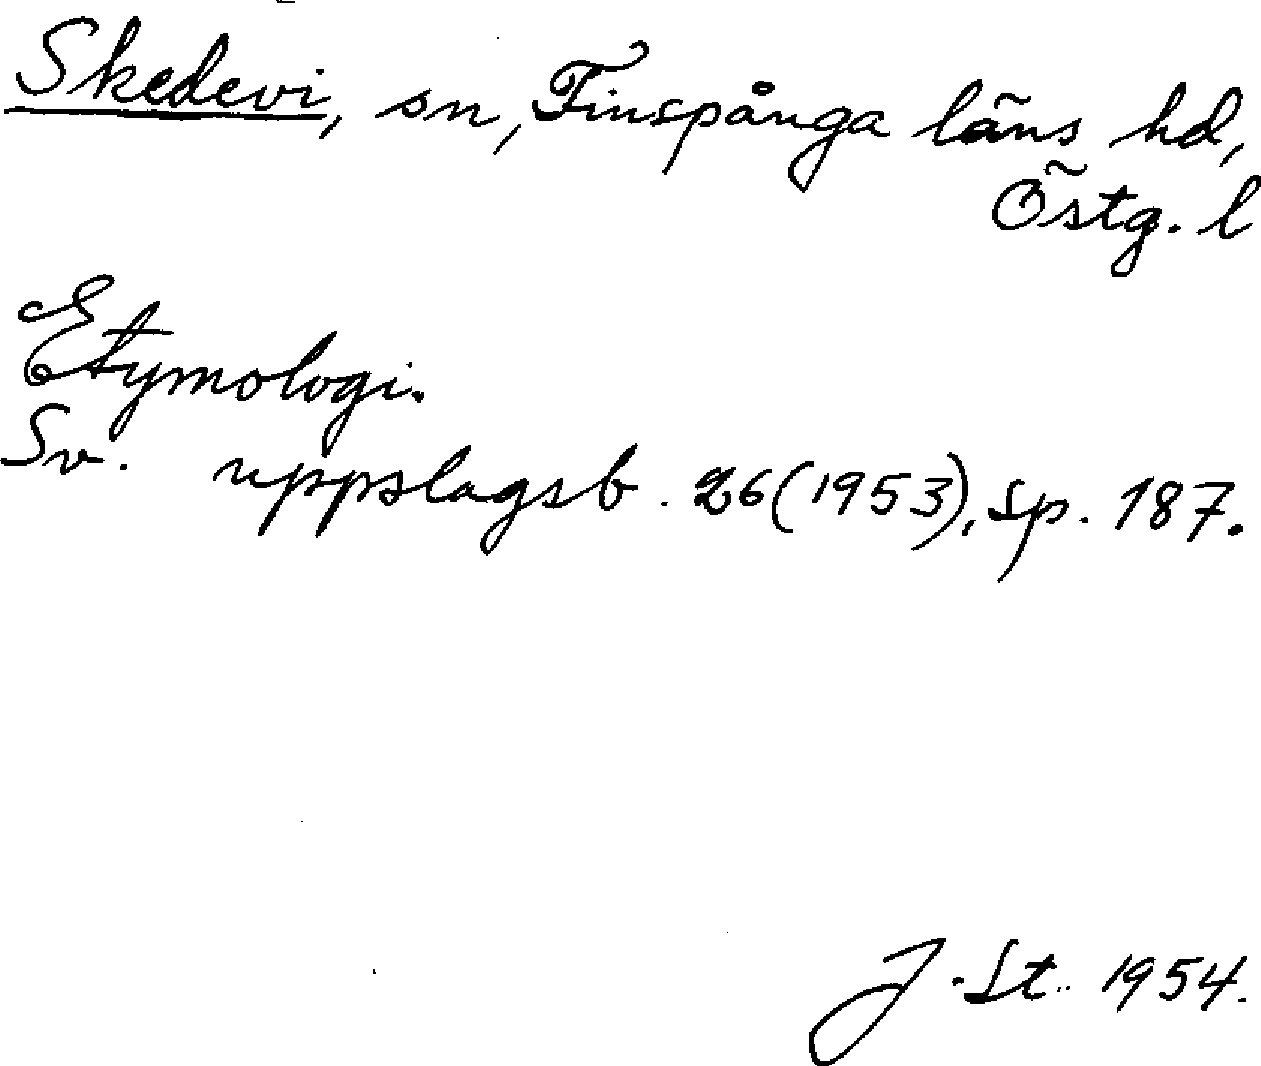 Skedevi, sn, Finspånga läns hd,
Östg. l
Etymologi.
Sv. uppslagsb. 26(1953), sp. 187.
J. St. 1954.